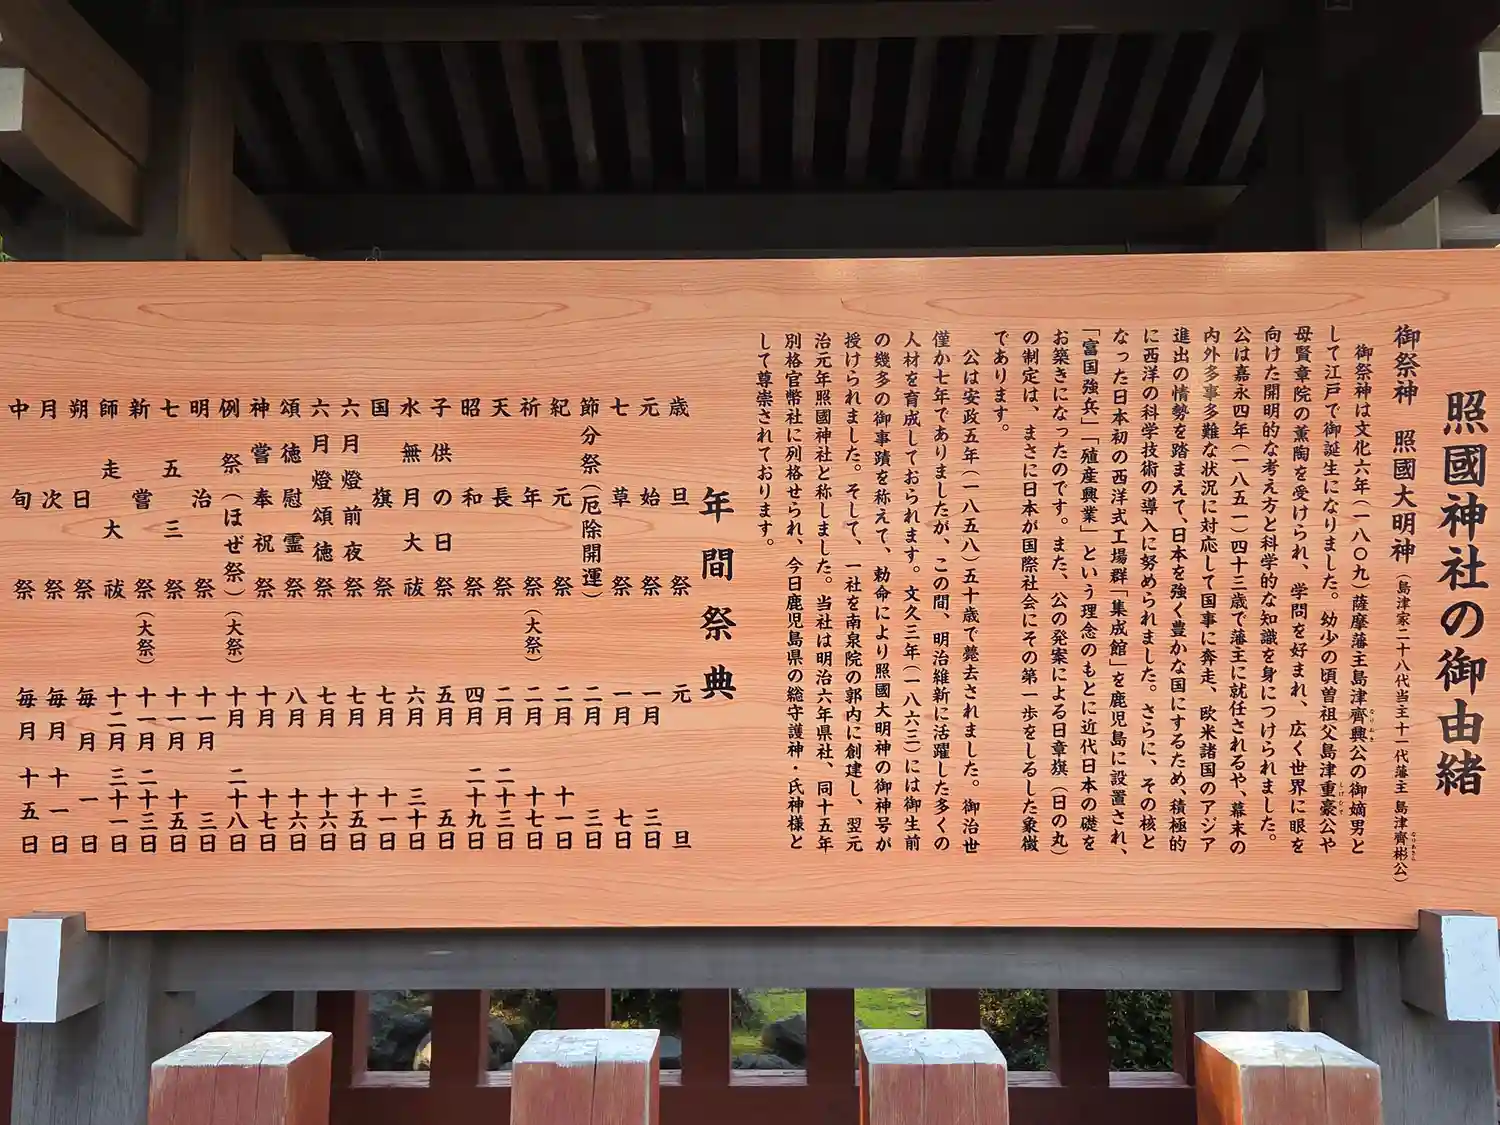 照國神社の御由緒
御祭神　照國大明神（島津家二十八代当主十一代藩主 島津齊彬公）
御祭神は文化六年（一八〇九）薩摩藩主島津齊興公の御嫡男と
して江戸で御誕生になりました。幼少の頃曽祖父島津重豪公や
母賢章院の薫陶を受けられ、学問を好まれ、広く世界に眼を
向けた開明的な考え方と科学的な知識を身につけられました。
公は嘉永四年（一八五一）四十三歳で藩主に就任されるや、幕末の
内外多事多難な状況に対応して国事に奔走、欧米諸国のアジア
進出の情勢を踏まえて、日本を強く豊かな国にするため、積極的
に西洋の科学技術の導入に努められました。さらに、その核と
なった日本初の西洋式工場群「集成館」を鹿児島に設置され、
「富国強兵」「殖産興業」という理念のもとに近代日本の礎を
お築きになったのです。また、公の発案による日章旗（日の丸）
の制定は、まさに日本が国際社会にその第一歩をしるした象徴
であります。
公は安政五年（一八五八）五十歳で薨去されました。御治世
僅か七年でありましたが、この間、明治維新に活躍した多くの
人材を育成しておられます。文久三年（一八六三）には御生前
の幾多の御事蹟を称えて、勅命により照國大明神の御神号が
授けられました。そして、一社を南泉院の郭内に創建し、翌元
治元年照國神社と称しました。当社は明治六年県社、同十五年
別格官幣社に列格せられ、今日鹿児島県の総守護神・氏神様と
して尊崇されております。
年間祭典
歳旦祭　元旦
元始祭　一月三日
七草祭　一月七日
節分祭（厄除開運）　二月三日
紀元祭　二月十一日
祈年祭（大祭）　二月十七日
天長祭　二月二十三日
昭和祭　四月二十九日
子供の日祭　五月五日
水無月大祓　六月三十日
国旗祭　七月十一日
六月燈前夜祭　七月十五日
六月燈頌徳祭　七月十六日
頌徳慰霊祭　八月十六日
神嘗奉祝祭　十月十七日
例祭（ほぜ祭）（大祭）　十月二十八日
明治祭　十一月三日
七五三祭　十一月十五日
新嘗祭（大祭）　十一月二十三日
師走大祓　十二月三十一日
朔日祭　毎月一日
月次祭　毎月十一日
中旬祭　毎月十五日